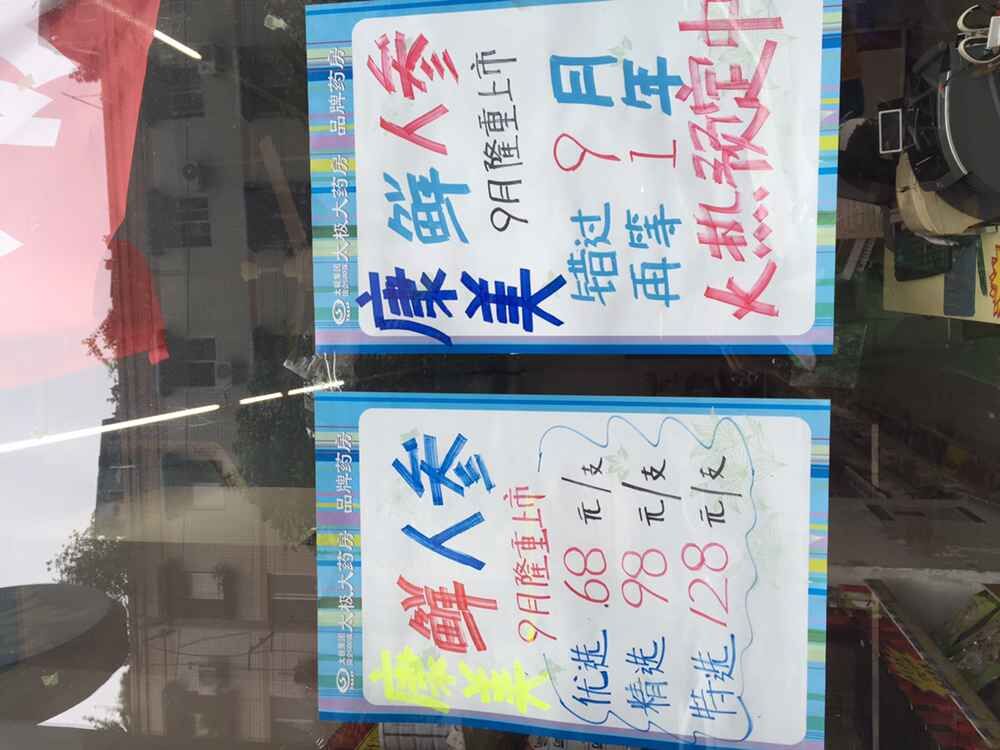 太极集团
太极大药房 品牌药房
康美鲜人参
9月隆重上市
优选.68元/支
精选98元/支
特选128元/支
太极集团
太极大药房 品牌药房
康美鲜人参
9月隆重上市
错过9月
再等1年
火热预定中